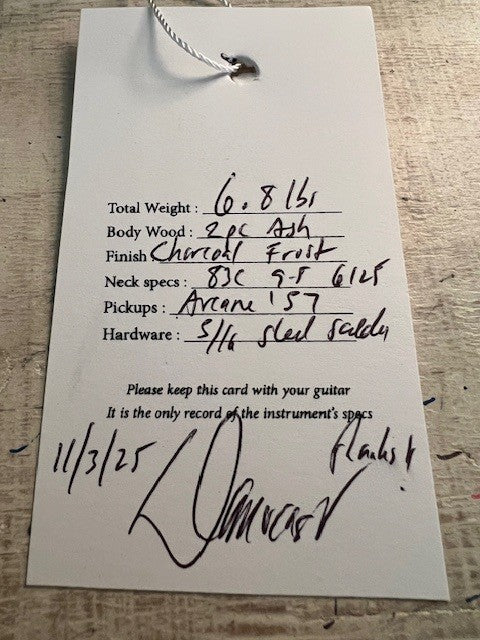 Total Weight : 6.8 lbs
Body Wood : 2 pc Ash
Finish Charcoal Frost
Neck specs : 83C 9-5 6125
Pickups : Arcane '57
Hardware : 5/16 steel saddles
Please keep this card with your guitar
It is the only record of the instrument's specs
11/3/25
Thanks!
Danocaster